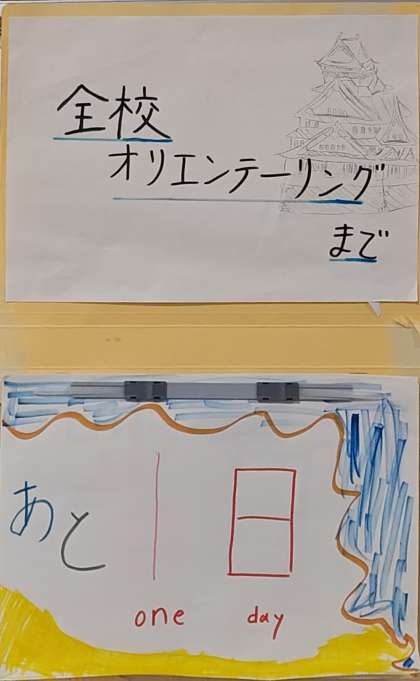 全校
オリエンテーリング
まで
あと 1 日
one day